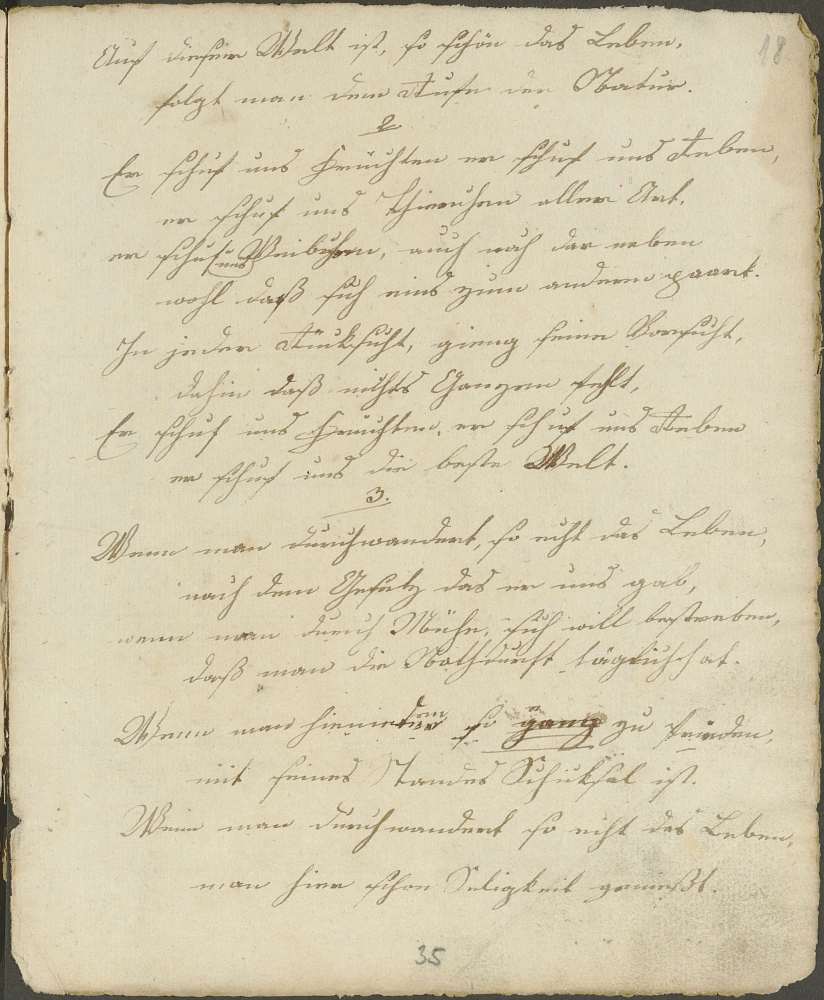 18.
Auf dieser Welt ist, so schön das Leben,
folgt man dem Rufe der Natur.
2
Er schuf uns Früchten er schuf uns Reben,
er schuf uns Thieruhen aller Art,
er schuf uns Weibuhen, auch noch dar neben
wohl daß sich eins zum andern paart.
In jeder Rücksicht, gieng seine Vorsicht,
dahin daß nichts Ganzem fehlt,
Er schuf uns Früchten, er schuf uns Reben
er schuf uns die beste Welt.
3.
Wenn man durchwandert, so echt das Leben,
nach dem Gesetz das er uns gab,
wenn man durch Mühe, sich will bestreben,
daß man die Nothdurft täglich hat.
Wenn man hienieden so ganz zu frieden,
mit seines Standes Schicksal ist.
Wenn man durchwandert so echt das Leben,
man hier schon Seligkeit genießt.
35